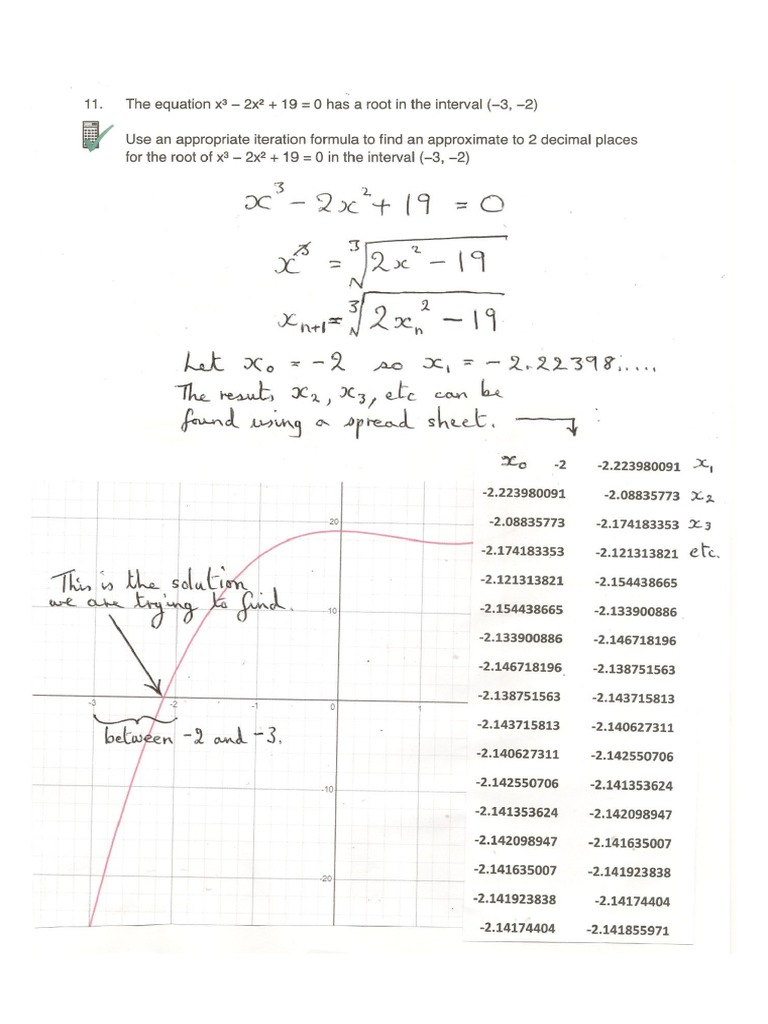 11. The equation x³ – 2x² + 19 = 0 has a root in the interval (–3, –2)
Use an appropriate iteration formula to find an approximate to 2 decimal places
for the root of x³ – 2x² + 19 = 0 in the interval (–3, –2)
x³ – 2x² + 19 = 0
x³ = ∛(2x² – 19)
xₙ₊₁ = ∛(2xₙ² – 19)
Let x₀ = –2 so x₁ = –2.22398.....
The resuts x₂, x₃, etc can be
found using a spread sheet.
x₀ -2 -2.223980091 x₁
-2.223980091 -2.08835773 x₂
-2.08835773 -2.174183353 x₃
-2.174183353 -2.121313821 etc.
-2.121313821 -2.154438665
-2.154438665 -2.133900886
-2.133900886 -2.146718196
-2.146718196 -2.138751563
-2.138751563 -2.143715813
-2.143715813 -2.140627311
-2.140627311 -2.142550706
-2.142550706 -2.141353624
-2.141353624 -2.142098947
-2.142098947 -2.141635007
-2.141635007 -2.141923838
-2.141923838 -2.14174404
-2.14174404 -2.141855971
20
This is the solution
we are trying to find.
10
-3 -2 -1 0 1
between -2 and -3.
-10
-20